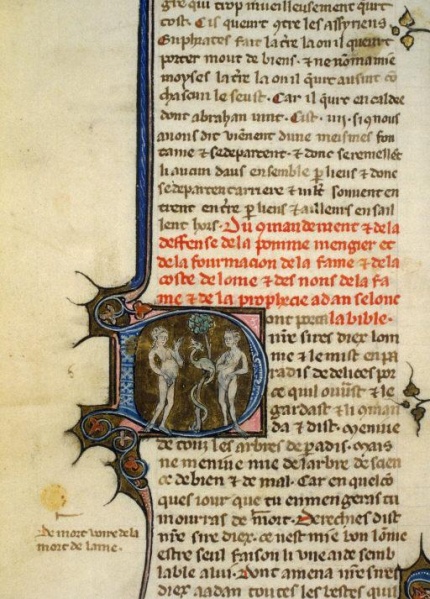 gre qui trop merveilleusement quert
cost. Cis queurt contre les assyriens
Euphrates fait la tre la on il queurt
porter mout de biens. ⁊ ne nomma mie
moyses la tre la on il qurt
chascun le seust. Car il qurt en caldee
dont abraham vint. Cist .iiii. si nous
avons dit vienent dune meismes fon
taine ⁊ se departent. ⁊ donc se remellet
li aucun daus ensemble p lieus ⁊ donc
se departent arriere ⁊ souvent en
trent en tre p lieus ⁊ ailleurs en sail
lent hors. Du qmandement ⁊ de la
deffense de la pomme mengier et
de la fourmacion de la fame ⁊ de la
coste de lome ⁊ des nons de la fa
me ⁊ de la prophecie adan selonc
la bible.
Dont nre sires diex lom
me ⁊ le mist en pa
radis de delices por
ce quil ouvrast ⁊ le
gardast ⁊ li qman
da ⁊ dist. Menjue
de touz les arbres de padis. mais
ne menjue mie de larbre de scien
ce de bien ⁊ de mal. Car en quelcon
ques iour que tu en mengeras tu
mourras de mort. Derechief dist
nre sire diex. ce nest mie bon lome
estre seul faison li une aide semb
lable a lui. Dont amena nre sires
diex a adan toutes les bestes quil
De mort voire de la
mort de lame.